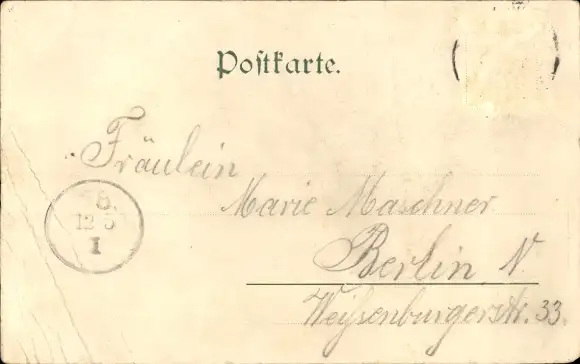 Postkarte.
Fräulein
Marie Maschner
Berlin N
Weißenburgerstr. 33.
8.
12 5
I